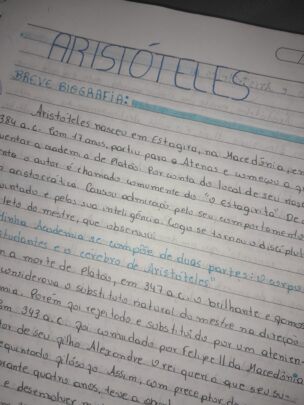 ARISTÓTELES
BREVE BIOGRAFIA:
Aristóteles nasceu em Estagira, na Macedônia, em
384 a.C. Com 17 anos, partiu para a Atenas e começou a
a academia de Platão. Por conta do local de seu
o autor é chamado comumente do "o estagirita" De
aristocrática. Causou admiração pelo seu comportamento
e pela sua inteligência. Logo se tornou o discípulo
do mestre, que observou:
Minha Academia se compõe de duas partes: o corpo
estudantes e o cérebro de Aristóteles"
a morte de Platão, em 347 a.c. o brilhante e
considerava o substituto natural do mestre na direção
Porém foi rejeitado e substituído por um
343 a.c. foi convidado por Felipe II da Macedônia
de seu filho Alexandre. O rei queria que seu
filósofo. Assim, como preceptor de
durante quatro anos, teve a
e desenvolver